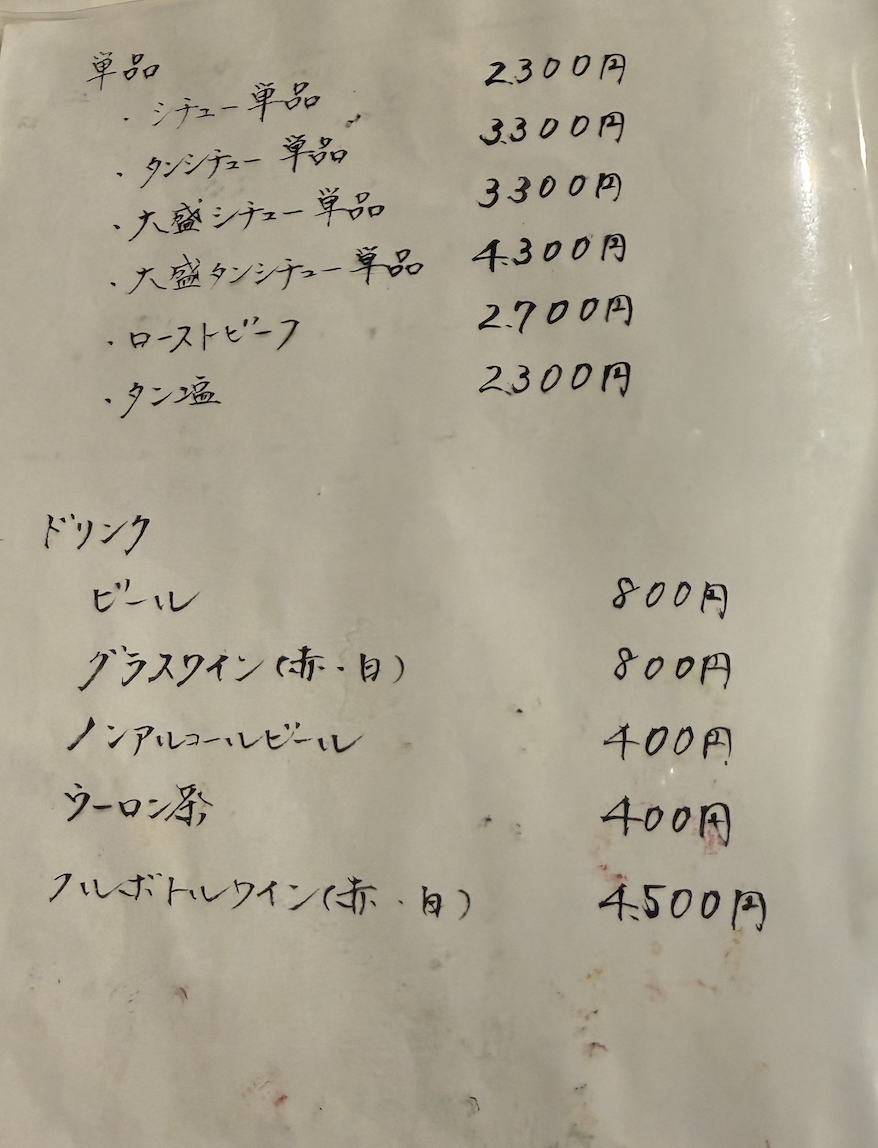 単品
・シチュー単品 2.300円
・タンシチュー単品 3.300円
・大盛シチュー単品 3300円
・大盛タンシチュー単品 4.300円
・ローストビーフ 2.700円
・タン塩 2.300円
ドリンク
ビール 800円
グラスワイン(赤・白) 800円
ノンアルコールビール 400円
ウーロン茶 400円
フルボトルワイン(赤・白) 4.500円